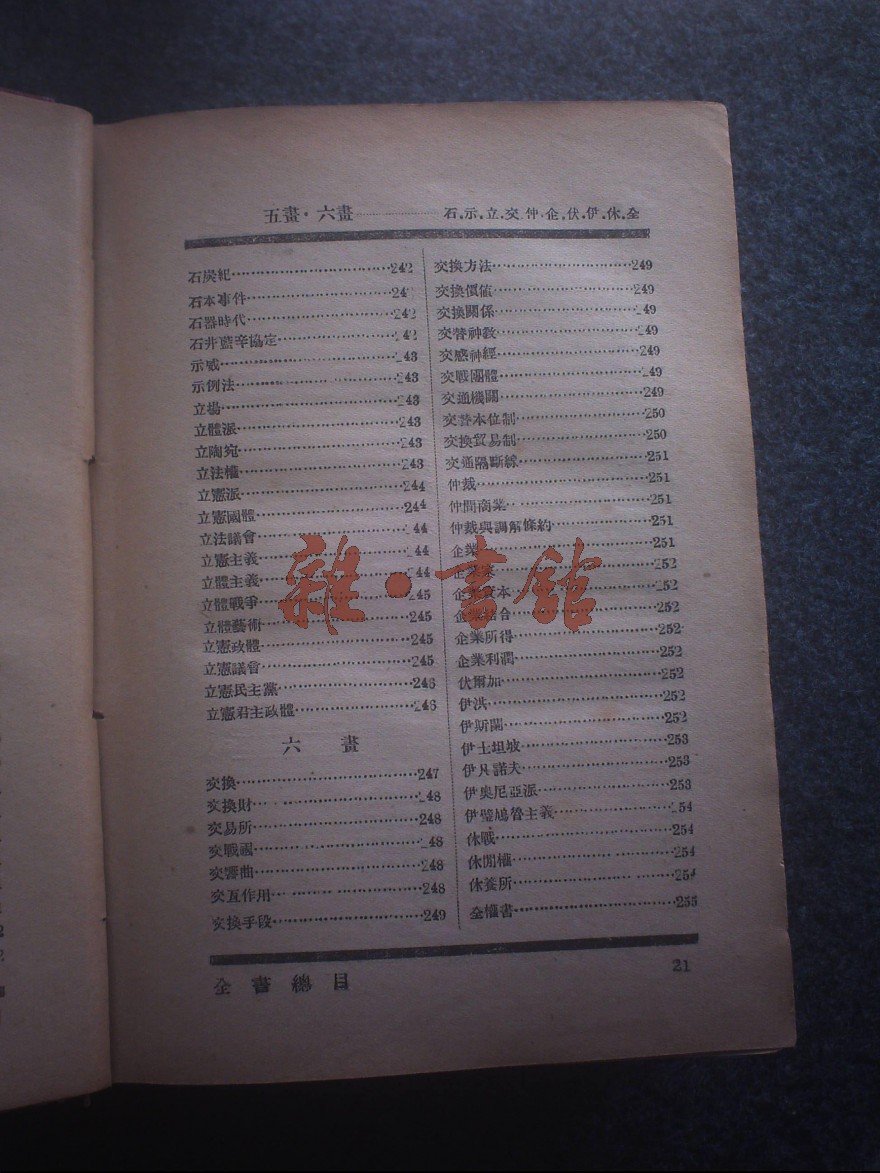 五畫・六畫…………石,示,立,交,仲,企,伏,伊,休,全
石炭紀…………242
石本事件…………24
石器時代…………242
石井藍辛協定…………42
示威…………43
示例法…………43
立場…………243
立體派…………243
立陶宛…………243
立法權…………243
立憲派…………244
立憲國體…………244
立法議會…………44
立憲主義…………44
立體主義…………44
立體戰爭…………245
立體藝術…………245
立憲政體…………245
立憲議會…………245
立憲民主黨…………246
立憲君主政體…………246
六畫
交換…………247
交換財…………48
交易所…………248
交戰視…………48
交響曲…………248
交互作用…………248
交換手段…………249
交換方法…………249
交換價值…………249
交換關係…………49
交替神教…………49
交感神經…………249
交戰團體…………49
交通機關…………249
交替本位制…………250
交換貿易制…………250
交通隔斷線…………251
仲裁…………251
仲間商業…………251
仲裁與調解條約…………251
企業…………251
企業家…………252
企業資本…………52
企業結合…………252
企業所得…………252
企業利潤…………252
伏爾加…………252
伊洪…………252
伊斯蘭…………252
伊士坦坡…………253
伊凡諾夫…………253
伊奧尼亞派…………253
伊壁鳩魯主義…………54
休戰…………254
休閒權…………254
休養所…………254
全權書…………255
全書總目
21
雜・書館